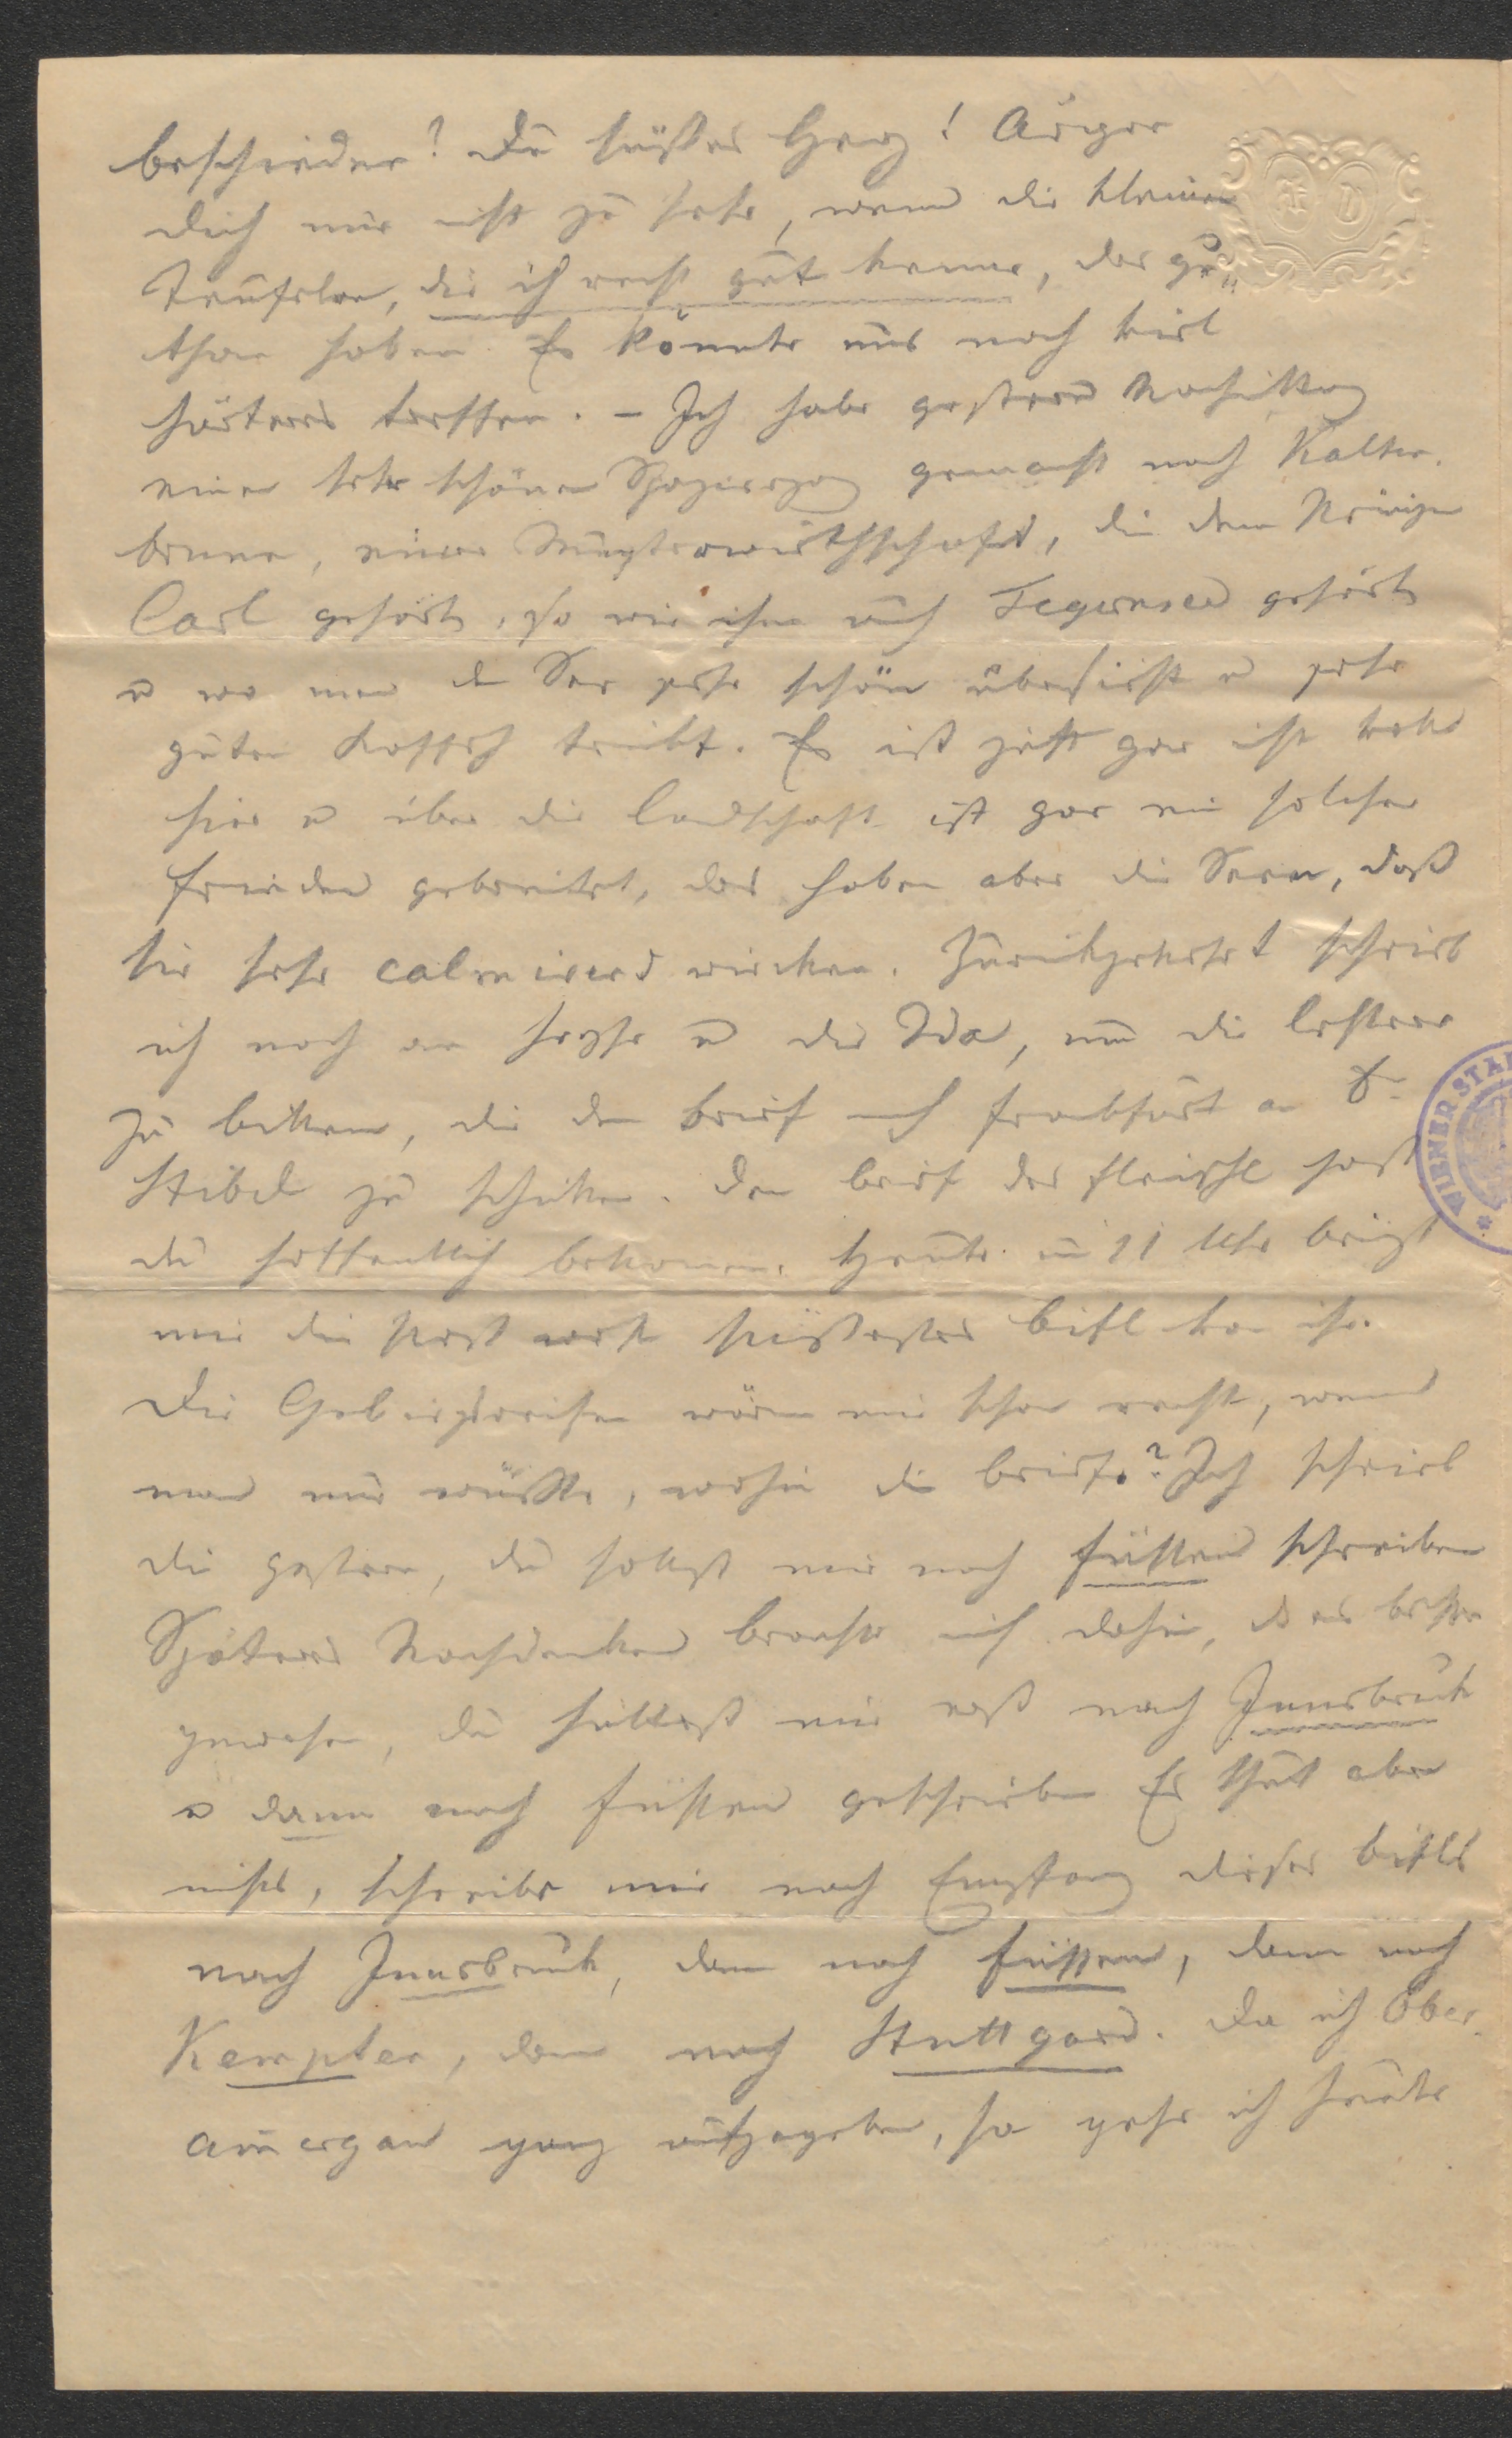 beschieden? Du süßes Herz! Ärgere
dich nur nicht zu sehr, wenn die kleinen
Teufeln, die ich recht gut kenne, das ge„
than haben. Es könnte uns noch viel
härteres treffen. – Ich habe gestern Nachmittag
einen sehr schönen Spaziergang gemacht nach Kalten-
brunn, einer Musterwirthschaft, die dem Prinzen
Carl gehört, so wie ihm auch Tegernsee gehört
u wo man den See sehr schön übersieht u sehr
guten Kaffeh trinkt. Es ist jetzt gar nicht
hier u über die Landschaft ist gar ein solcher
Frieden gebreitet, das haben aber die Seen, daß
sie sehr calmirend wirken. Zurückgekehrt schrieb
ich noch an u die Ida, um die letztere
zu bitten, dir den Brief nach Frankfurt an Dr
Stibel zu schicken. Den Brief der Fleischl hast
du hoffentlich bekommen. Heute um 11 Uhr bringt
mir die Post wohl süßestes Bißl von ihr.
Die Gebirgsreisen wären mir schon recht, wenn
man nur wüßte, wohin die Briefe? Ich schrieb
dir gestern, du sollst mir nach Füssen schreiben
Späteres Nachdenken brachte mich dahin, es wär besser
gewesen, du hättest mir erst nach Innsbruck
u dann nach Füssen geschrieben Es thut aber
nichts, schreibe mir nach Empfang dieses Bißls
nach Innsbruck, dann nach Füssen, dann nach
Kempten, dann nach Stuttgard. Da ich Ober-
ammergau ganz aufgegeben, so gehe ich heute
WIENER STA